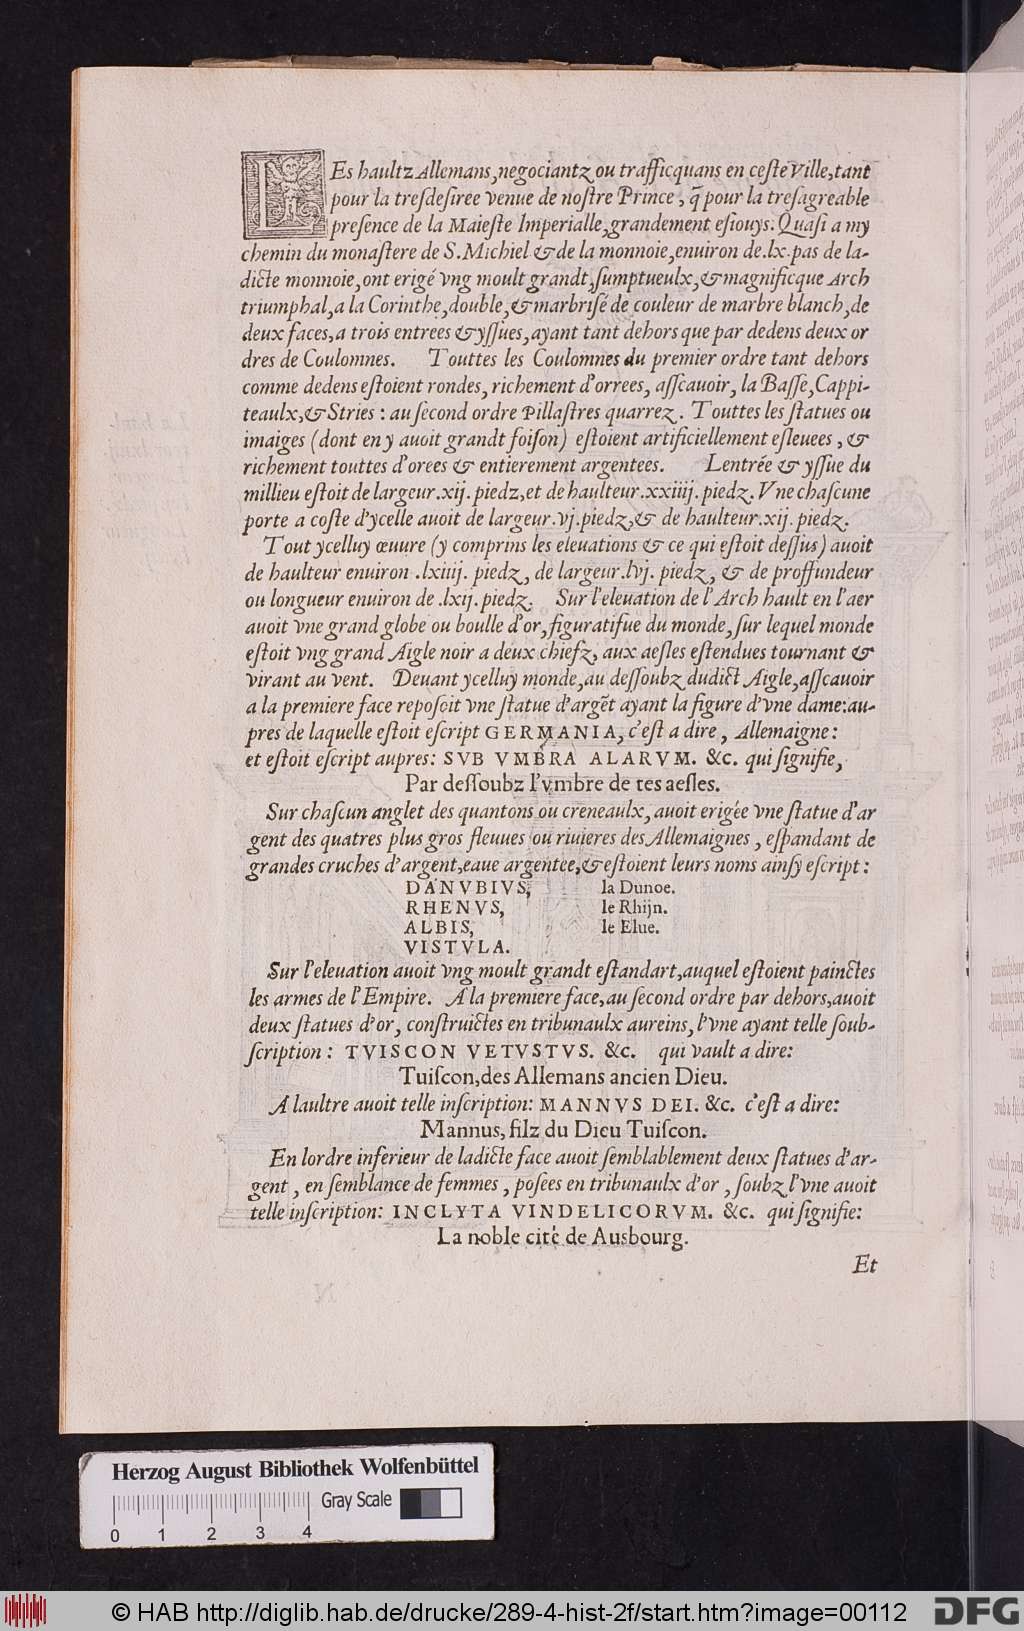 LEs haultz Allemans, negociantz ou trafficquans en ceſte Ville, tant
pour la treſdeſiree venue de noſtre Prince, q̃ pour la treſagreable
preſence de la Maieſte Imperialle, grandement eſiouys: Quaſi a my
chemin du monaſtere de S. Michiel & de la monnoie, enuiron de .lx. pas de la-
dicte monnoie, ont erigé vng moult grandt, ſumptueulx, & magnificque Arch
triumphal, a la Corinthe, double, & marbriſé de couleur de marbre blanch, de
deux faces, a trois entrees & yſſues, ayant tant dehors que par dedens deux or
dres de Coulomnes. Touttes les Coulomnes du premier ordre tant dehors
comme dedens eſtoient rondes, richement d'orrees, aſſcauoir, la Baſſe, Cappi-
teaulx, & Stries: au ſecond ordre Pillaſtres quarrez. Touttes les ſtatues ou
imaiges (dont en y auoit grandt foiſon) eſtoient artificiellement eſleuees, &
richement touttes d'orees & entierement argentees. Lentrée & yſſue du
millieu eſtoit de largeur .xij. piedz, et de haulteur .xxiiij. piedz. Vne chaſcune
porte a coſte d'ycelle auoit de largeur .vj. piedz, & de haulteur .xij. piedz.
Tout ycelluy œuure (y comprins les eleuations & ce qui eſtoit deſſus) auoit
de haulteur enuiron .lxiiij. piedz, de largeur .lvj. piedz, & de proffundeur
ou longueur enuiron de .lxij. piedz. Sur l'eleuation de l'Arch hault en l'aer
auoit vne grand globe ou boulle d'or, figuratifue du monde, ſur lequel monde
eſtoit vng grand Aigle noir a deux chiefz, aux aeſles eſtendues tournant &
virant au vent. Deuant ycelluy monde, au deſſoubz dudict Aigle, aſſcauoir
a la premiere face repoſoit vne ſtatue d'argẽt ayant la figure d'vne dame: au-
pres de laquelle eſtoit eſcript GERMANIA, c'eſt a dire, Allemaigne:
et eſtoit eſcript aupres: SVB VMBRA ALARVM. &c. qui ſignifie,
Par deſſoubz l'vmbre de tes aeſles.
Sur chaſcun anglet des quantons ou creneaulx, auoit erigée vne ſtatue d'ar
gent des quatres plus gros fleuues ou riuieres des Allemaignes, eſpandant de
grandes cruches d'argent, eaue argentee, & eſtoient leurs noms ainſy eſcript:
DANVBIVS, la Dunoe.
RHENVS, le Rhijn.
ALBIS, le Elue.
VISTVLA.
Sur l'eleuation auoit vng moult grandt eſtandart, auquel eſtoient painctes
les armes de l'Empire. A la premiere face, au ſecond ordre par dehors, auoit
deux ſtatues d'or, conſtruictes en tribunaulx aureins, l'vne ayant telle ſoub-
ſcription: TVISCON VETVSTVS. &c. qui vault a dire:
Tuiſcon, des Allemans ancien Dieu.
A laultre auoit telle inſcription: MANNVS DEI. &c. c'eſt a dire:
Mannus, filz du Dieu Tuiſcon.
En lordre inferieur de ladicte face auoit ſemblablement deux ſtatues d'ar-
gent, en ſemblance de femmes, poſees en tribunaulx d'or, ſoubz l'vne auoit
telle inſcription: INCLYTA VINDELICORVM. &c. qui ſignifie:
La noble cité de Ausbourg.
Et
Herzog August Bibliothek Wolfenbüttel
Gray Scale
0 1 2 3 4
© HAB http://diglib.hab.de/drucke/289-4-hist-2f/start.htm?image=00112
DFG